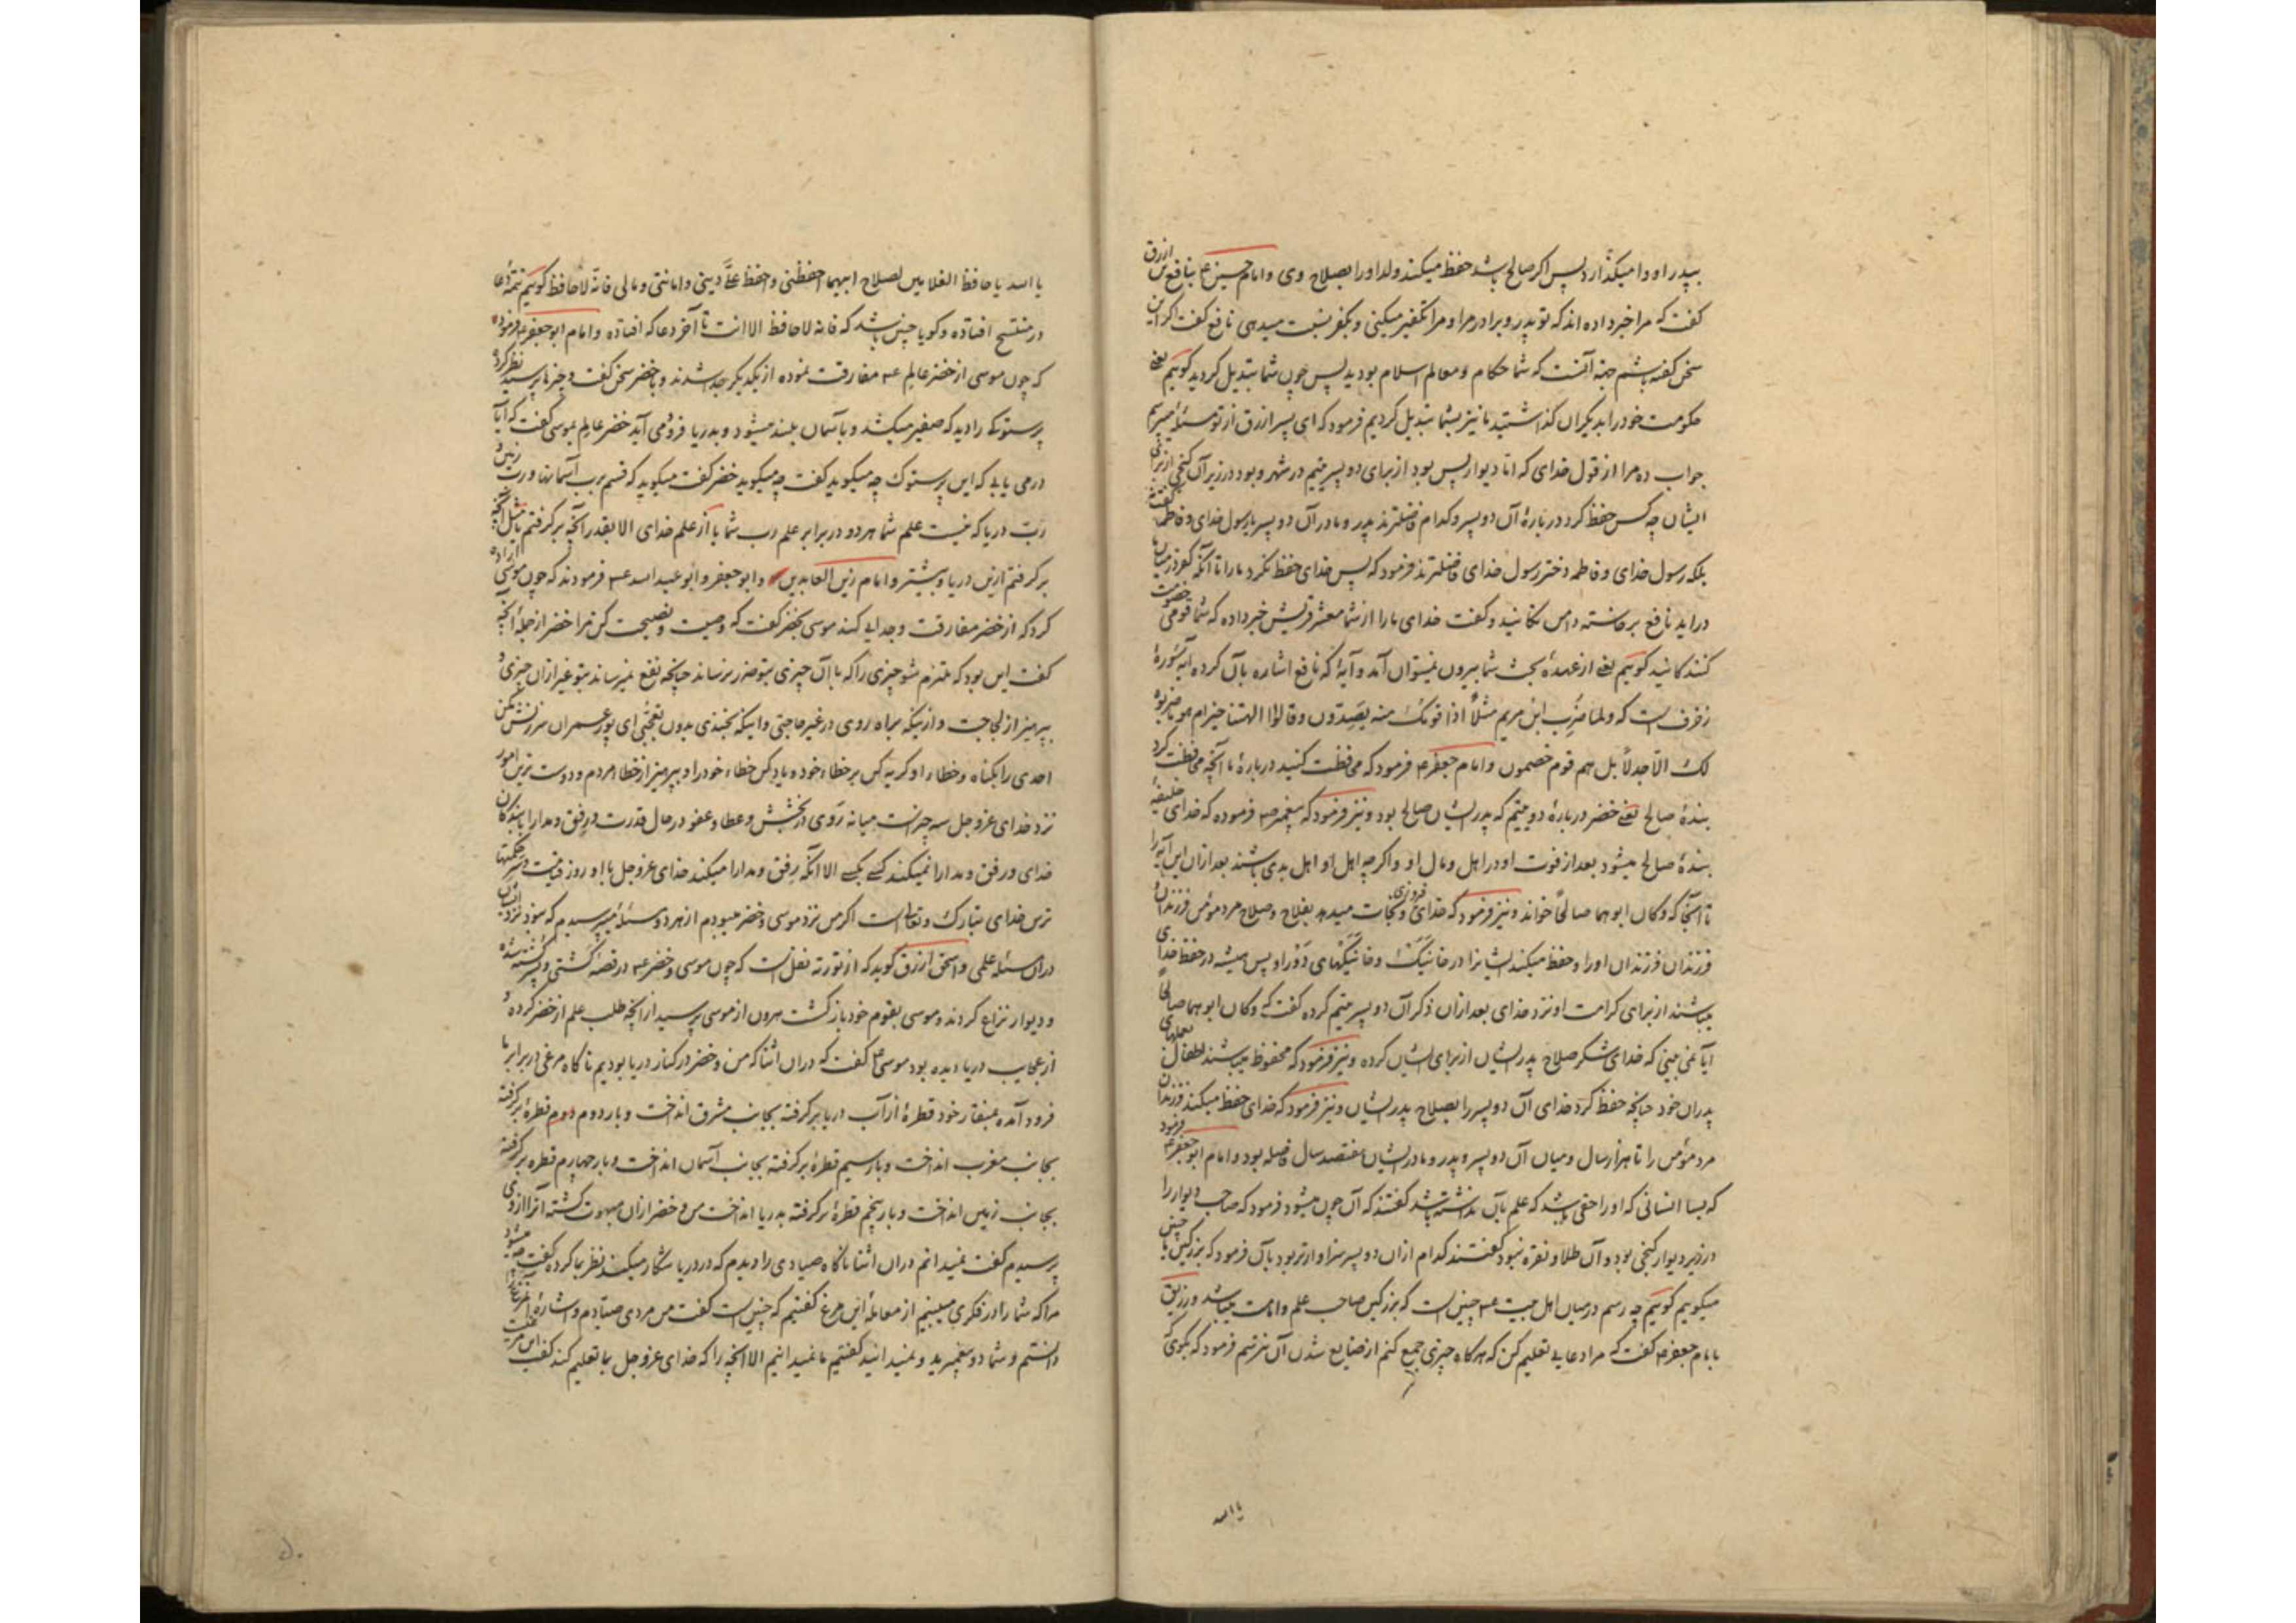 بپدر او وا میگذارد پس اگر صالح باشد حفظ میکند ولد او را بصلاح وی و امام حسین ع بنافع بن ازرق
گفت که مرا خبر داده اند که تو پدر و برادر مرا و مرا تکفیر میکنی و بکفر نسبت میدهی نافع گفت اگر این
سخن گفته باشم جهة آنست که شما حکام و معالم اسلام بودید پس چون شما تبدیل کردید گوییم یعنی
حکومت خود را بدیگران گذاشتید ما نیز بشما تبدیل کردیم فرمود که ای پسر ازرق از تو مسئلهٔ میپرسم
جواب ده مرا از قول خدای که اما دیوار پس بود از برای دو پسر یتیم در شهر و بود در زیر آن گنجی از برای
ایشان چه کس حفظ کرد دربارهٔ آن دو پسر و کدام فاضلترند پدر و مادر آن دو پسر یا رسول خدای و فاطمه گفت
بلکه رسول خدای و فاطمه دختر رسول خدای فاضلترند فرمود که پس خدای حفظ نکرد ما را تا آنکه کفر در میان ما
دراید نافع برخاسته دامن تکانید و گفت خدای ما را از شما معشر قریش خبر داده که شما قومی خصومت
کنندگانید گوییم یعنی از عهدهٔ بحث شما بیرون نمیتوان آمد و آیهٔ که نافع اشاره بآن کرده آیه سورهٔ
زخرف است که ولما ضرب ابن مریم مثلاً اذا قومک منه یصدون وقالوا الهتنا خیر ام هو ما ضربوه
لک الا جدلاً بل هم قوم خصمون و امام جعفر ع فرمود که محافظت کنید دربارهٔ ما آنچه محافظت کرد
بندهٔ صالح یعنی خضر دربارهٔ دو یتیم که پدر ایشان صالح بود و نیز فرمود که پیغمبر ص فرموده که خدای خلیفهٔ
بندهٔ صالح میشود بعد از فوت او در اهل و مال او و اگرچه اهل او اهل بدی باشند بعد ازان این آیه را
تا آنجا که وکان ابوهما صالحاً خواند و نیز فرمود که خدای فیروزی و نجات میدهد بفلاح و صلاح مرد مؤمن فرزندان و
فرزندان فرزندان او را و حفظ میکند ایشانرا در خانیکت و خانیکهای دور او پس همیشه در حفظ خدای
میباشند از برای کرامت او نزد خدای بعد ازان ذکر آن دو پسر یتیم کرده گفت که وکان ابوهما صالحاً
آیا نمی بینی که خدای شکر صلاح پدر ایشان از برای ایشان کرده و نیز فرمود که محفوظ میباشند اطفال بعملهای
پدران خود چنانچه حفظ کرد خدای آن دو پسر را بصلاح پدر ایشان و نیز فرمود که خدای حفظ میکند فرزندان
مرد مؤمن را تا هزار سال و میان آن دو پسر و پدر و مادر ایشان هفتصد سال فاصله بود و امام ابو جعفر ع فرمود
که بسا انسانی که او را حقی باشد که علم بآن نداشته باشد گفتند که آن چون میشود فرمود که صاحب دیوار را
در زیر دیوار گنجی بود و آن طلا و نقره نبود گفتند کدام ازان دو پسر سزاوارتر بود بآن فرمود که بزرگین ما چنین
میگوییم گوییم چه رسم در میان اهل بیت ع چنین است که بزرگین صاحب علم و امامت میباشد و رزیق
بامام جعفر ع گفت که مرا دعایی تعلیم کن که هرگاه چیزی جمع کنم از ضایع شدن آن نترسم فرمود که بگوی که
یا الله
یا الله یا حافظ الغلامین لصلاح ابیهما احفظنی واحفظ علیّ دینی وامانتی ومالی فانه لا حافظ گوییم تتمهٔ دعا
در منتسخ افتاده و گویا چنین باشد که فانه لا حافظ الا انت تا آخر دعا که افتاده و امام ابو جعفر ع فرمود
که چون موسی از خضر عالم ع مفارقت نموده از یکدیگر جدا شدند و با خضر سخن گفت و چیزها پرسید نظر کرد
پرستوکی را دید که صفیر میکشد و باسمان بلند میشود و بدریا فرو می آید خضر عالم بموسی گفت که آیا
درمی یابی که این پرستوک چه میگوید گفت چه میگوید خضر گفت میگوید که قسم برب آسمانها و رب زمین و
رب دریا که نیست علم شما هر دو در برابر علم رب شما یا از علم خدای الا بقدر آنچه برگرفتم یا مثل آنچه
برگرفتم ازین دریا و بیشتر و امام زین العابدین و ابو جعفر و ابو عبد الله ع فرمودند که چون موسی اراده
کرد که از خضر مفارقت و جدایی کند موسی بخضر گفت که وصیت و نصیحت کن مرا خضر از جملهٔ آنچه
گفت این بود که ملتزم شو چیزی را که با آن چیزی بتو ضرر نرساند چنانچه نفع نمیرساند بتو غیر ازان چیزی و
بپرهیز از لجاجت و ازینکه براه روی در غیر حاجتی و اینکه بخندی بدون تعجبی ای پور عمران سرزنش مکن
احدی را بگناه و خطاء او و گریه کن بر خطاء خود و یاد کن خطاء خود را و بپرهیز از خطاء مردم و دوست ترین امور
نزد خدای عز وجل سه چیز است میانه روی در بخشش و عطا و عفو در حال قدرت و رفق و مدارا با بندگان
خدای و رفق و مدارا نمیکند کسی بکسی الا آنکه رفق و مدارا میکند خدای عز وجل با او روز قیامت و سر حکمتها
ترس خدای تبارک وتعالی است اگر من نزد موسی و خضر میبودم از هر دو مسئلهٔ میپرسیدم که نبود نزد ایشان
دران مسئله علمی و اسحق ازرق گوید که از تورته نقل است که چون موسی و خضر ع در قصهٔ کشتی و پسر کشته شده
و دیوار نزاع کردند و موسی بقوم خود بازگشت هرون از موسی پرسید از آنچه طلب علم از خضر کرده و
از عجایب دریا دیده بود موسی ع گفت که دران اثنا که من و خضر در کنار دریا بودیم ناگاه مرغی در برابر ما
فرود آمده بمنقار خود قطرهٔ از آب دریا برگرفته بجانب مشرق انداخت و بار دوم قطرهٔ برگرفته
بجانب مغرب انداخت و بار سیم قطرهٔ برگرفته بجانب آسمان انداخت و بار چهارم قطره برگرفته
بجانب زمین انداخت و بار پنجم قطرهٔ برگرفته بدریا انداخت من و خضر ازان مبهوت گشته آنرا از وی
پرسیدم گفت نمیدانم دران اثنا ناگاه صیادی را دیدم که در دریا شکار میکند نظر بما کرده گفت چه میشود
مرا که شما را در فکری میبینم از معاملهٔ این مرغ گفتیم که چنین است گفت من مردی صیادم و اشارهٔ آن مرغ را
دانستم و شما دو پیغمبرید و نمیدانید گفتیم ما نمیدانیم الا آنچه را که خدای عز وجل بما تعلیم کند گفت این مرغیست